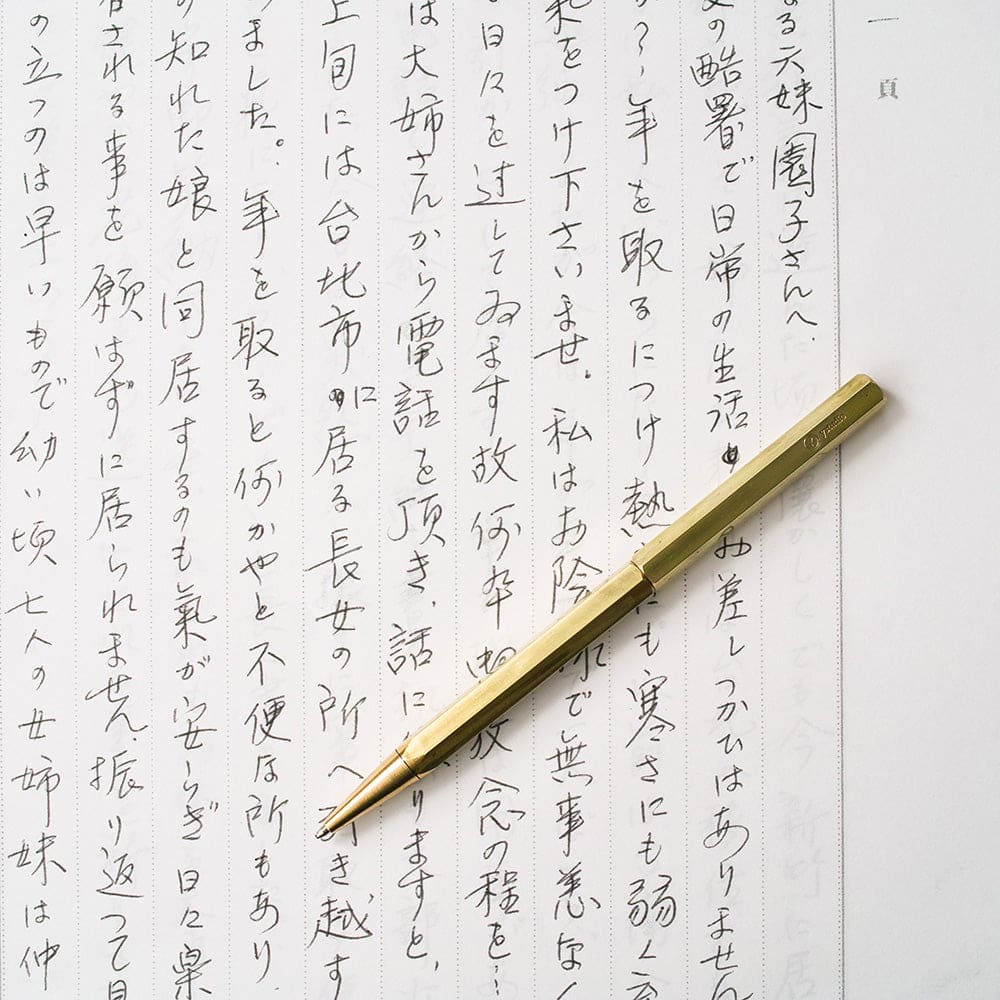 一頁
なる六妹園子さんへ、
の酷暑で日常の生活 お差しつかひはありません
か?、年を取るにつけ熱 にも寒さにも弱く
をつけ下さいませ。私はお陰 で無事恙なく
日々を過してゐます故何卒 放念の程を…
は大姉さんから電話を頂き、話に りますと、
上旬には台北市に居る長女の所へ引き越す
ました。年を取ると何かやと不便な所もあり
の知れた娘と同居するのも氣が安らぎ日々
される事を願はずに居られません、振り返つて
の立つのは早いもので幼い頃七人の女姉妹は仲
ystudio